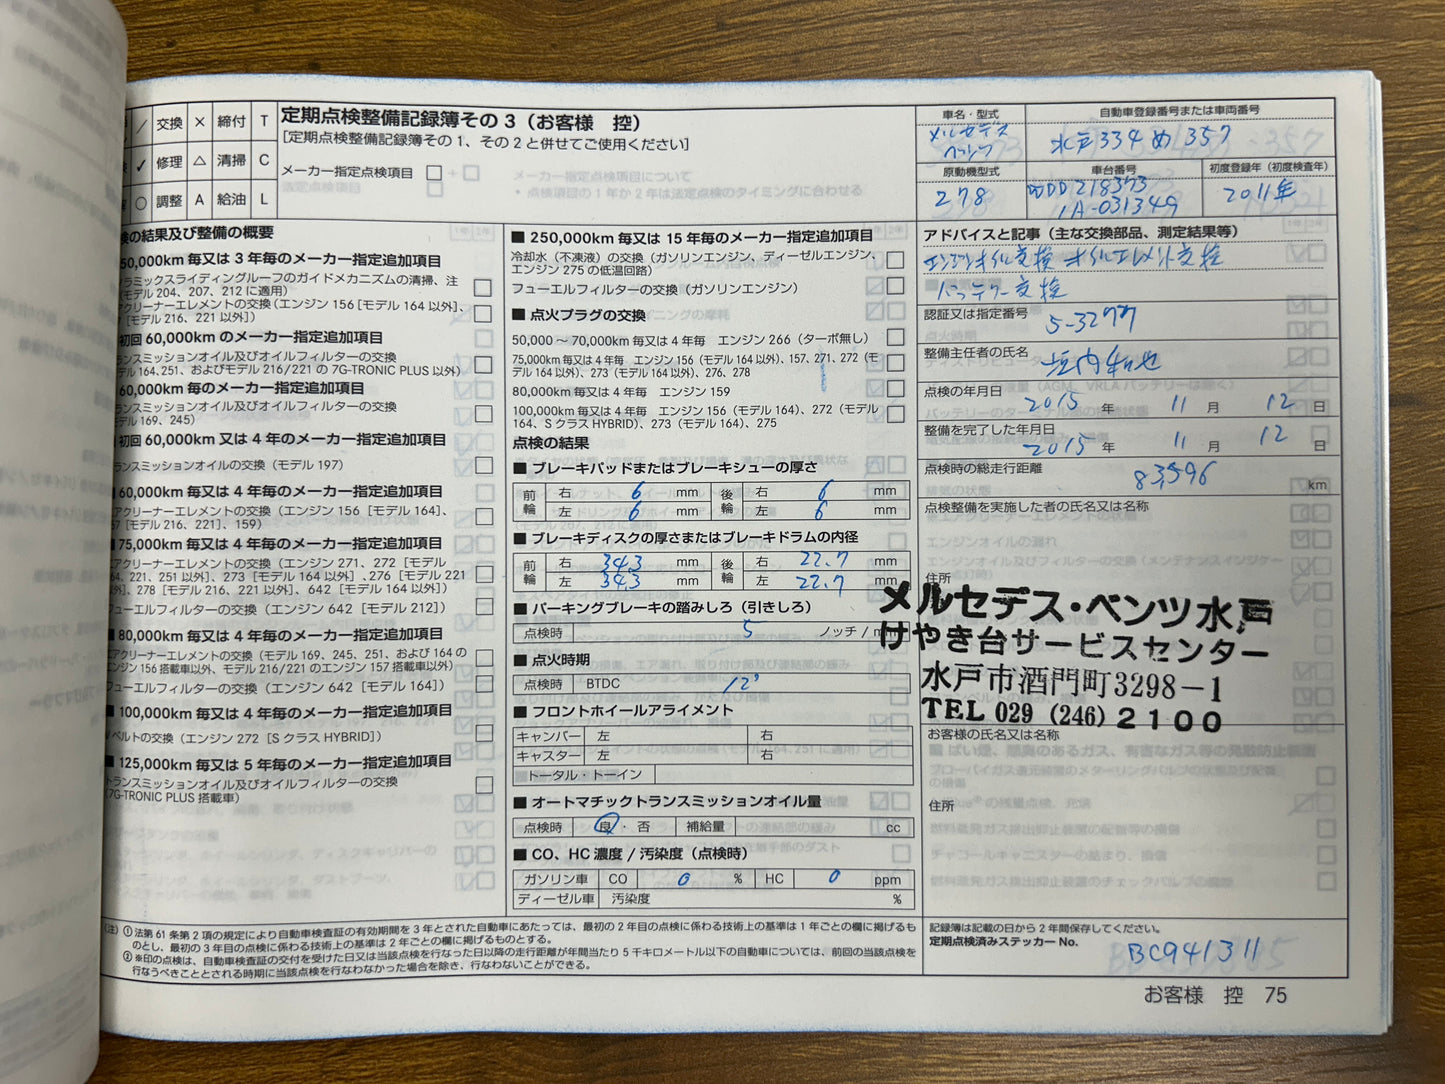 ／ 交換 × 締付 T
✓ 修理 △ 清掃 C
○ 調整 A 給油 L
定期点検整備記録簿その 3（お客様　控）
[定期点検整備記録簿その 1、その 2 と併せてご使用ください]
メーカー指定点検項目 □
車名・型式
メルセデス
ベンツ
自動車登録番号または車両番号
水戸 334 め 357
原動機型式
278
車台番号
WDD 218373
1A-031349
初度登録年（初度検査年）
2011年
検の結果及び整備の概要
50,000km 毎又は 3 年毎のメーカー指定追加項目
ラミックスライディングルーフのガイドメカニズムの清掃、注
（モデル 204、207、212 に適用）
アクリーナーエレメントの交換（エンジン 156［モデル 164 以外］、
［モデル 216、221 以外］）
初回 60,000km のメーカー指定追加項目
ランスミッションオイル及びオイルフィルターの交換
デル 164、251、およびモデル 216/221 の 7G-TRONIC PLUS 以外）
60,000km 毎のメーカー指定追加項目
ランスミッションオイル及びオイルフィルターの交換
モデル 169、245）
初回 60,000km 又は 4 年毎のメーカー指定追加項目
ランスミッションオイルの交換（モデル 197）
■ 60,000km 毎又は 4 年毎のメーカー指定追加項目
アクリーナーエレメントの交換（エンジン 156［モデル 164］、
57［モデル 216、221］、159）
■ 75,000km 毎又は 4 年毎のメーカー指定追加項目
エアクリーナーエレメントの交換（エンジン 271、272［モデル
164、221、251 以外］、273［モデル 164 以外］、276［モデル 221
以外］、278［モデル 216、221 以外］、642［モデル 164 以外］）
フューエルフィルターの交換（エンジン 642［モデル 212］）
■ 80,000km 毎又は 4 年毎のメーカー指定追加項目
エアクリーナーエレメントの交換（モデル 169、245、251、および 164 の
エンジン 156 搭載車以外、モデル 216/221 のエンジン 157 搭載車以外）
フューエルフィルターの交換（エンジン 642［モデル 164］）
■ 100,000km 毎又は 4 年毎のメーカー指定追加項目
Vベルトの交換（エンジン 272［S クラス HYBRID］）
■ 125,000km 毎又は 5 年毎のメーカー指定追加項目
トランスミッションオイル及びオイルフィルターの交換
（7G-TRONIC PLUS 搭載車）
■ 250,000km 毎又は 15 年毎のメーカー指定追加項目
冷却水（不凍液）の交換（ガソリンエンジン、ディーゼルエンジン、
エンジン 275 の低温回路）
フューエルフィルターの交換（ガソリンエンジン）
■ 点火プラグの交換
50,000 ～ 70,000km 毎又は 4 年毎　エンジン 266（ターボ無し）
75,000km 毎又は 4 年毎　エンジン 156（モデル 164 以外）、157、271、272（モ
デル 164 以外）、273（モデル 164 以外）、276、278
80,000km 毎又は 4 年毎　エンジン 159
100,000km 毎又は 4 年毎　エンジン 156（モデル 164）、272（モデル
164、S クラス HYBRID）、273（モデル 164）、275
点検の結果
■ ブレーキパッドまたはブレーキシューの厚さ
前輪 右 6 mm 後輪 右 6 mm
左 6 mm 左 6 mm
■ ブレーキディスクの厚さまたはブレーキドラムの内径
前輪 右 34.3 mm 後輪 右 22.7 mm
左 34.3 mm 左 22.7 mm
■ パーキングブレーキの踏みしろ（引きしろ）
点検時 5 ノッチ / mm
■ 点火時期
点検時 BTDC 12°
■ フロントホイールアライメント
キャンバー 左 右
キャスター 左 右
トータル・トーイン
■ オートマチックトランスミッションオイル量
点検時 良 ・ 否 補給量 cc
■ CO、HC 濃度 / 汚染度（点検時）
ガソリン車 CO 0 % HC 0 ppm
ディーゼル車 汚染度 %
アドバイスと記事（主な交換部品、測定結果等）
エンジンオイル交換　オイルエレメント交換
バッテリー交換
認証又は指定番号
5-3277
整備主任者の氏名
点検の年月日
2015 年 11 月 12 日
整備を完了した年月日
2015 年 11 月 12 日
点検時の総走行距離
83,596 km
点検整備を実施した者の氏名又は名称
住所
メルセデス・ベンツ水戸
けやき台サービスセンター
水戸市酒門町3298－1
TEL 029 (246) 2100
お客様の氏名又は名称
住所
（注）① 法第 61 条第 2 項の規定により自動車検査証の有効期間を 3 年とされた自動車にあたっては、最初の 2 年目の点検に係わる技術上の基準は 1 年ごとの欄に掲げるも
のとし、最初の 3 年目の点検に係わる技術上の基準は 2 年ごとの欄に掲げるものとする。
② ※印の点検は、自動車検査証の交付を受けた日又は当該点検を行なった日以降の走行距離が年間当たり 5 千キロメートル以下の自動車については、前回の当該点検を
行なうべきこととされる時期に当該点検を行なわなかった場合を除き、行なわないことができる。
記録簿は記載の日から 2 年間保存してください。
定期点検済みステッカー No.
BC941311
お客様　控　75